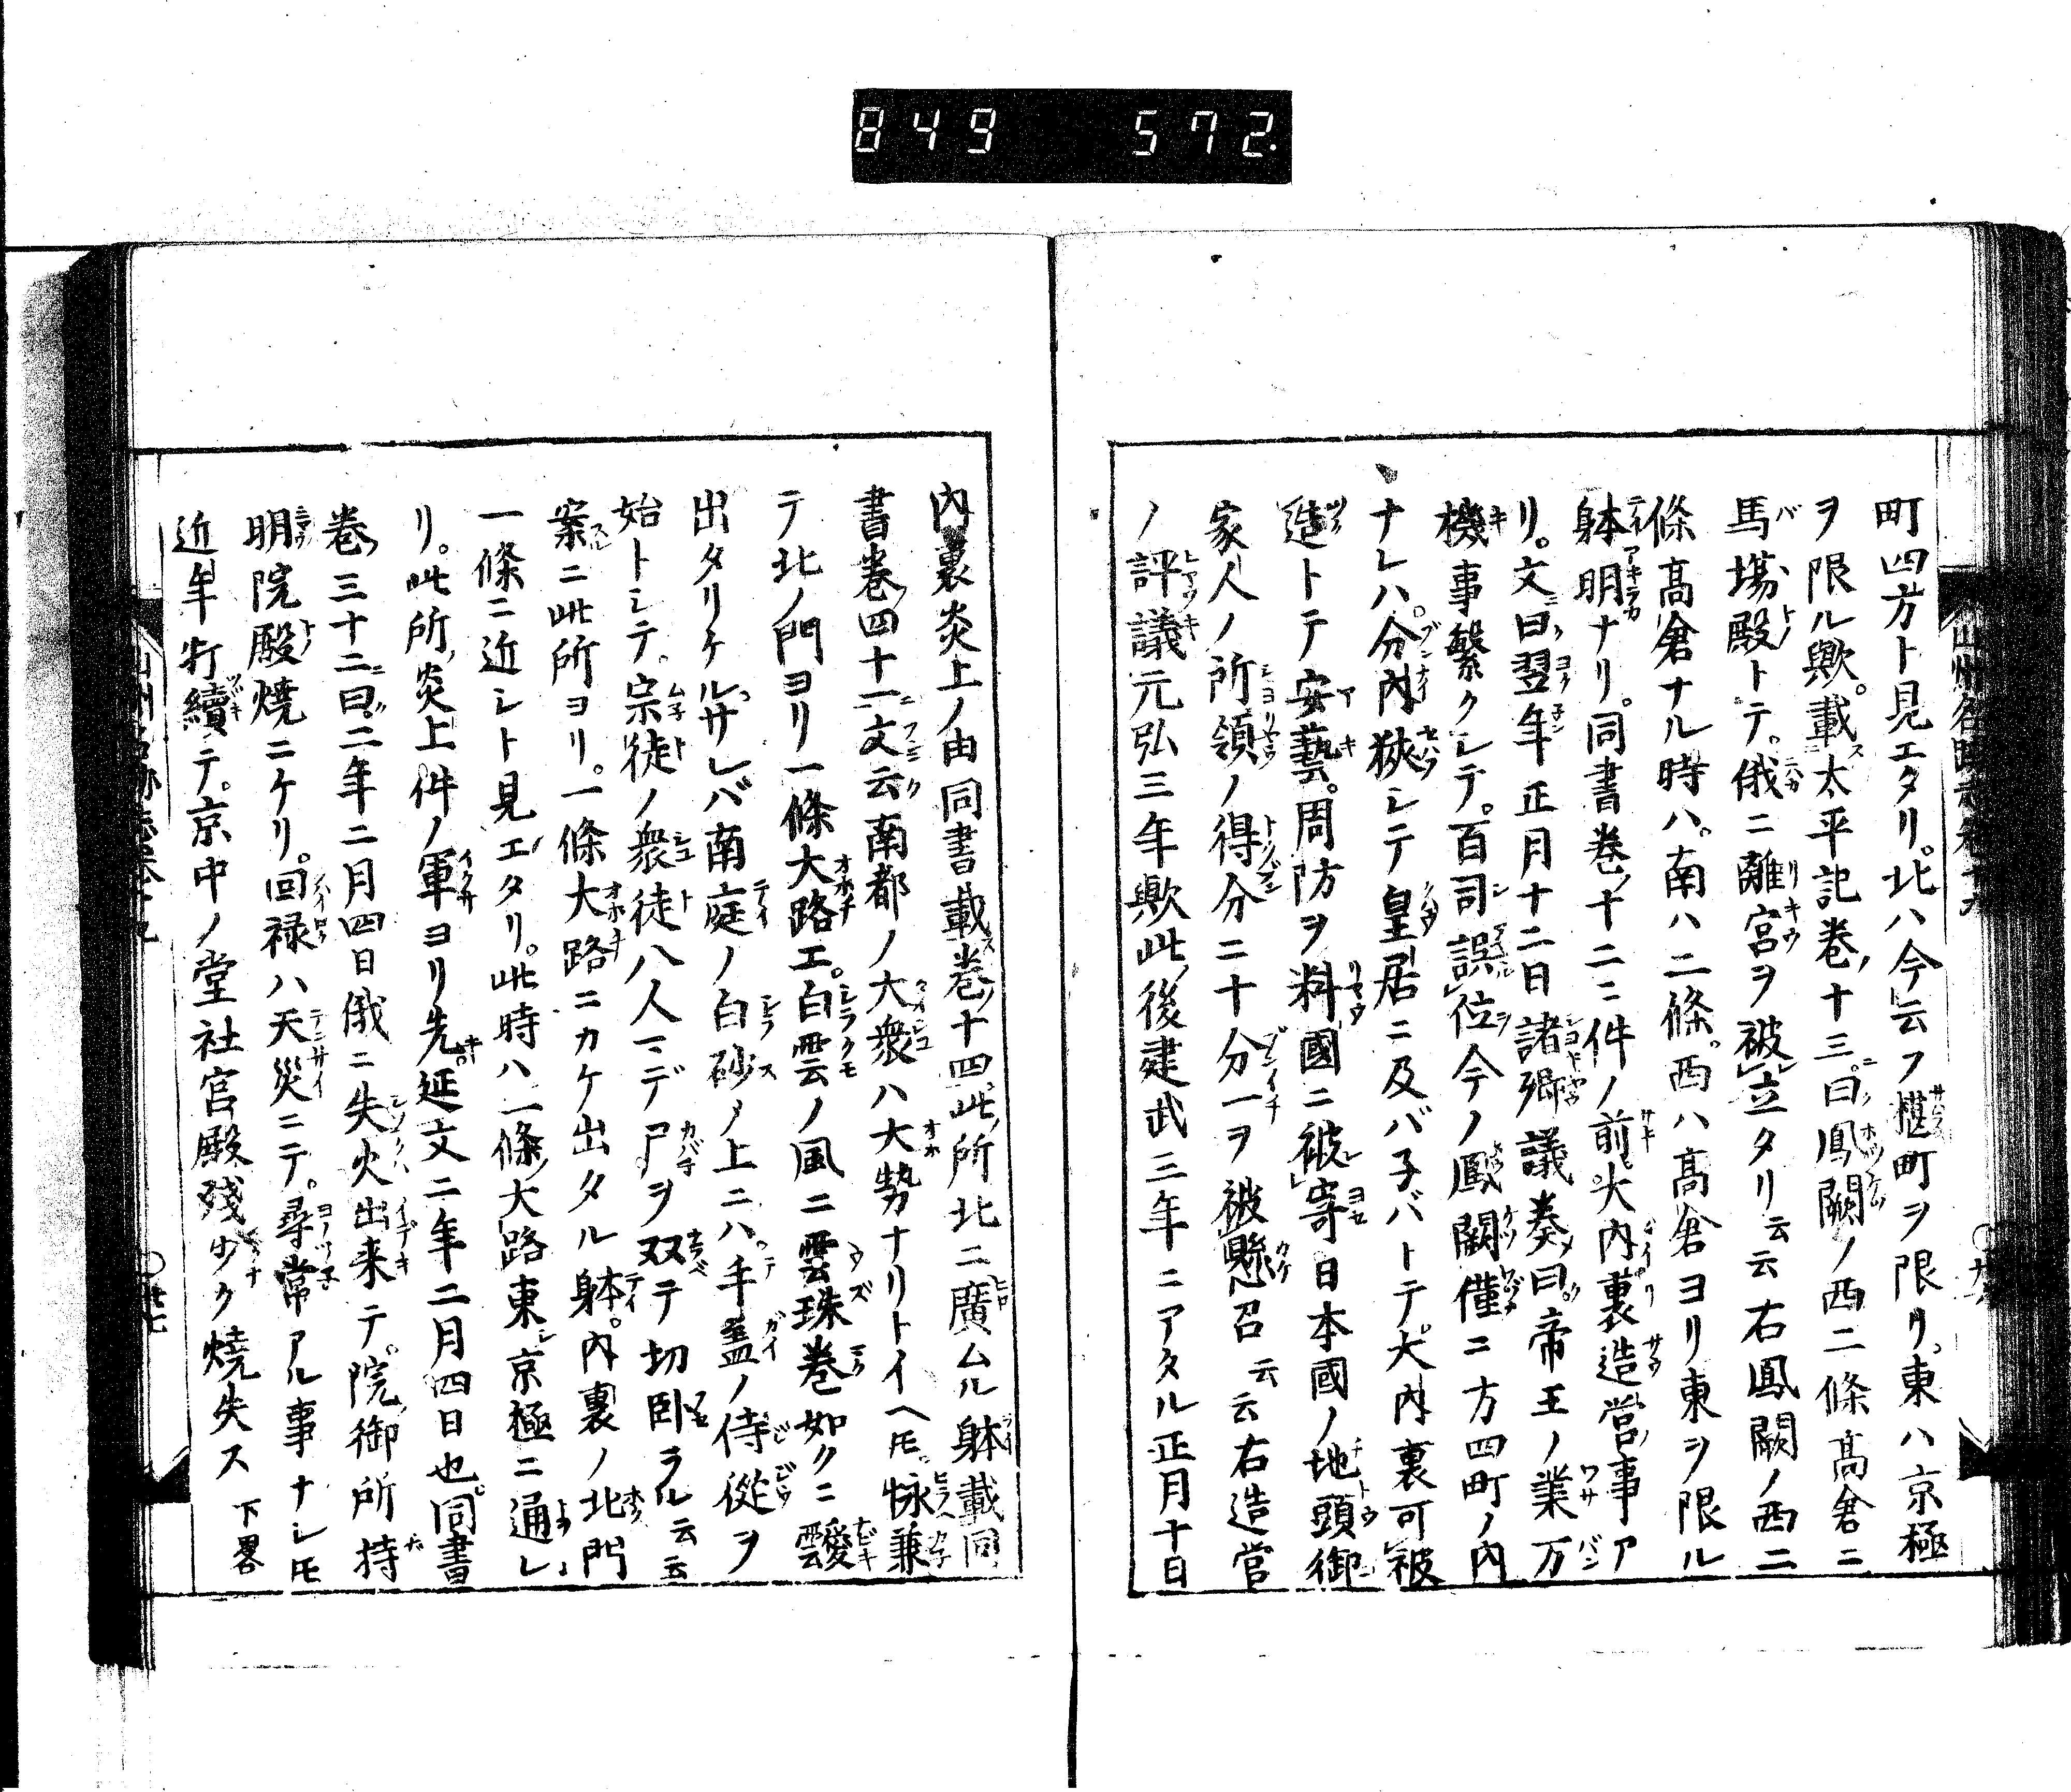 849 572.
町四方ト見エタリ。北ハ今云フ椹町ヲ限リ。東ハ京極
ヲ限ル歟。載太平記巻十三。曰鳳闕ノ西二條髙倉ニ
馬塲殿トテ。俄ニ離宮ヲ被立タリ云云右鳳闕ノ西二
條髙倉ナル時ハ。南ハ二條。西ハ髙倉ヨリ東ヲ限ル
躰明ナリ。同書巻十二ニ件ノ前大内裏造営事ア
リ。文曰翌年正月十二日諸卿議奏曰。帝王ノ業万
機事繁クシテ。百司設位今ノ鳳闕僅ニ方四町ノ内
ナレハ。分内狹シテ皇居ニ及バ子バトテ。大内裏可被
造トテ安藝。周防ヲ料國ニ被寄日本國ノ地頭御
家人ノ所領ノ得分二十分一ヲ被懸召云云右造営
ノ評議元弘三年歟此後建武三年ニアタル正月十日
内裏炎上ノ由同書載巻十四此所北ニ廣ムル躰載同
書巻四十一文云南都ノ大衆ハ大勢ナリトイヘ𪜈。怺兼
テ北ノ門ヨリ一條大路エ。白雲ノ風ニ雲珠巻如クニ靉
出タリケル。サレバ南庭ノ白砂ノ上ニハ手蓋ノ侍從ヲ
始トシテ。宗徒ノ衆徒八人マデ尸ヲ双テ切臥ラル云云
案ニ此所ヨリ。一條大路ニカケ出タル躰。内裏ノ北門
一條ニ近シト見エタリ。此時ハ一條大路東京極ニ通シ
リ。此所炎上件ノ軍ヨリ先延文二年二月四日也。同書
巻三十二曰。二年二月四日俄ニ失火出来テ。院御所持
明院殿焼ニケリ。回禄ハ天災ニテ。尋常アル事ナレ𪜈
近年打續テ。京中ノ堂社官殿残少ク燒失ス 下畧